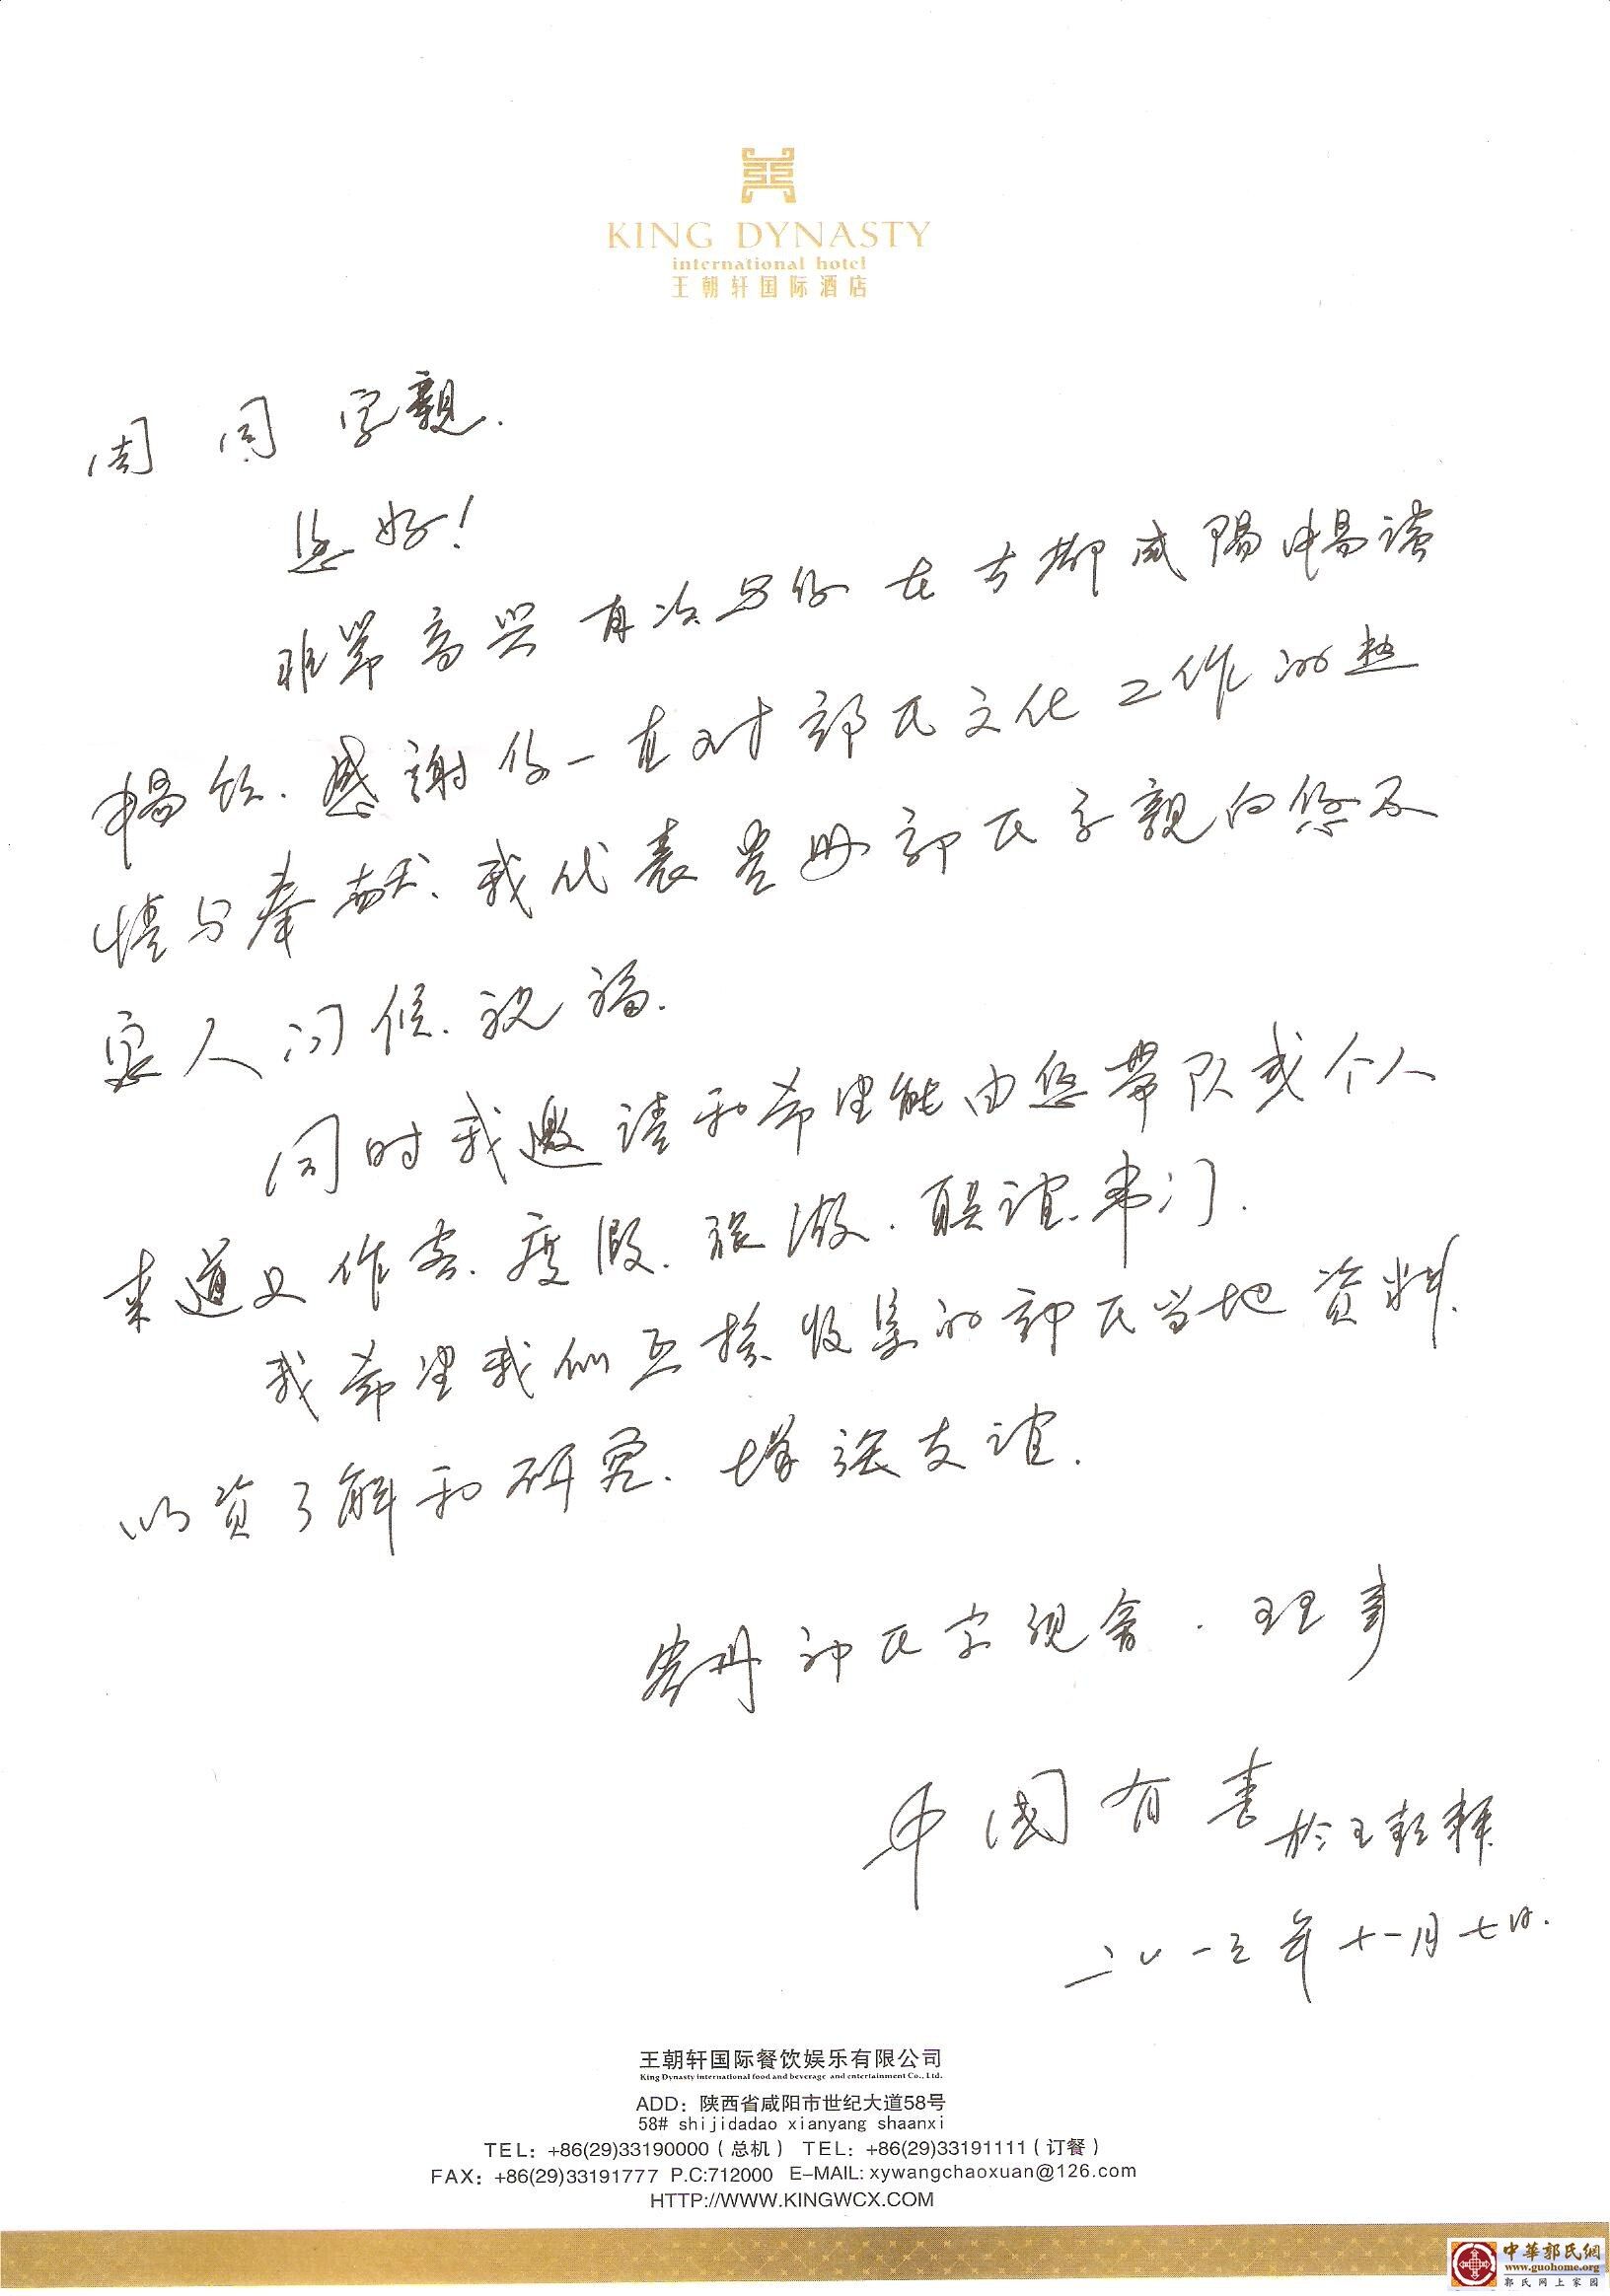 KING DYNASTY
international hotel
王朝轩国际酒店
周周宗親.
您好!
非常高兴再次与你在古都咸陽暢谈
暢饮.感謝你一直对郭氏文化工作的热
情与奉献、我代表贵州郭氏宗親向您及
家人问候.祝福.
同时我邀请和希望能由您带队或个人
来遵义作客.度假.旅游.联谊.串门.
我希望我们互换收集的郭氏当地资料.
以资了解和研究.增强友谊.
贵州郭氏宗親會.理事
中國有
於王朝轩
二〇一三年十一月七日.
王朝轩国际餐饮娱乐有限公司
King Dynasty international food and beverage and entertainment Co., Ltd.
ADD: 陕西省咸阳市世纪大道58号
58# shijidadao xianyang shaanxi
TEL: +86(29)33190000（总机） TEL: +86(29)33191111（订餐）
FAX: +86(29)33191777 P.C:712000 E-MAIL: xywangchaoxuan@126.com
HTTP://WWW.KINGWCX.COM
中華郭氏網
www.guohome.org
郭氏网上家园